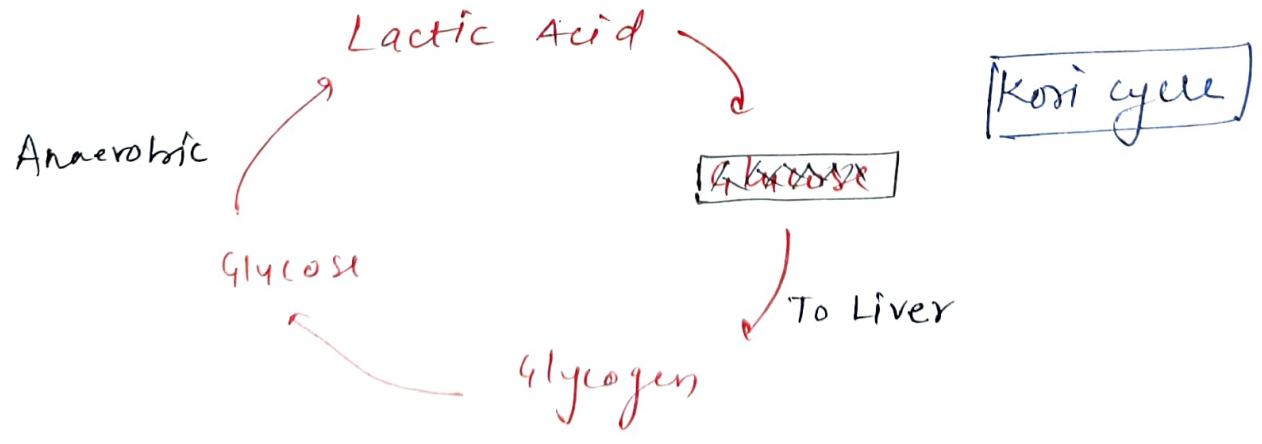 Lactic Acid
Kori cycle
Anaerobic
Glucose
Glycose
To Liver
Glycogen